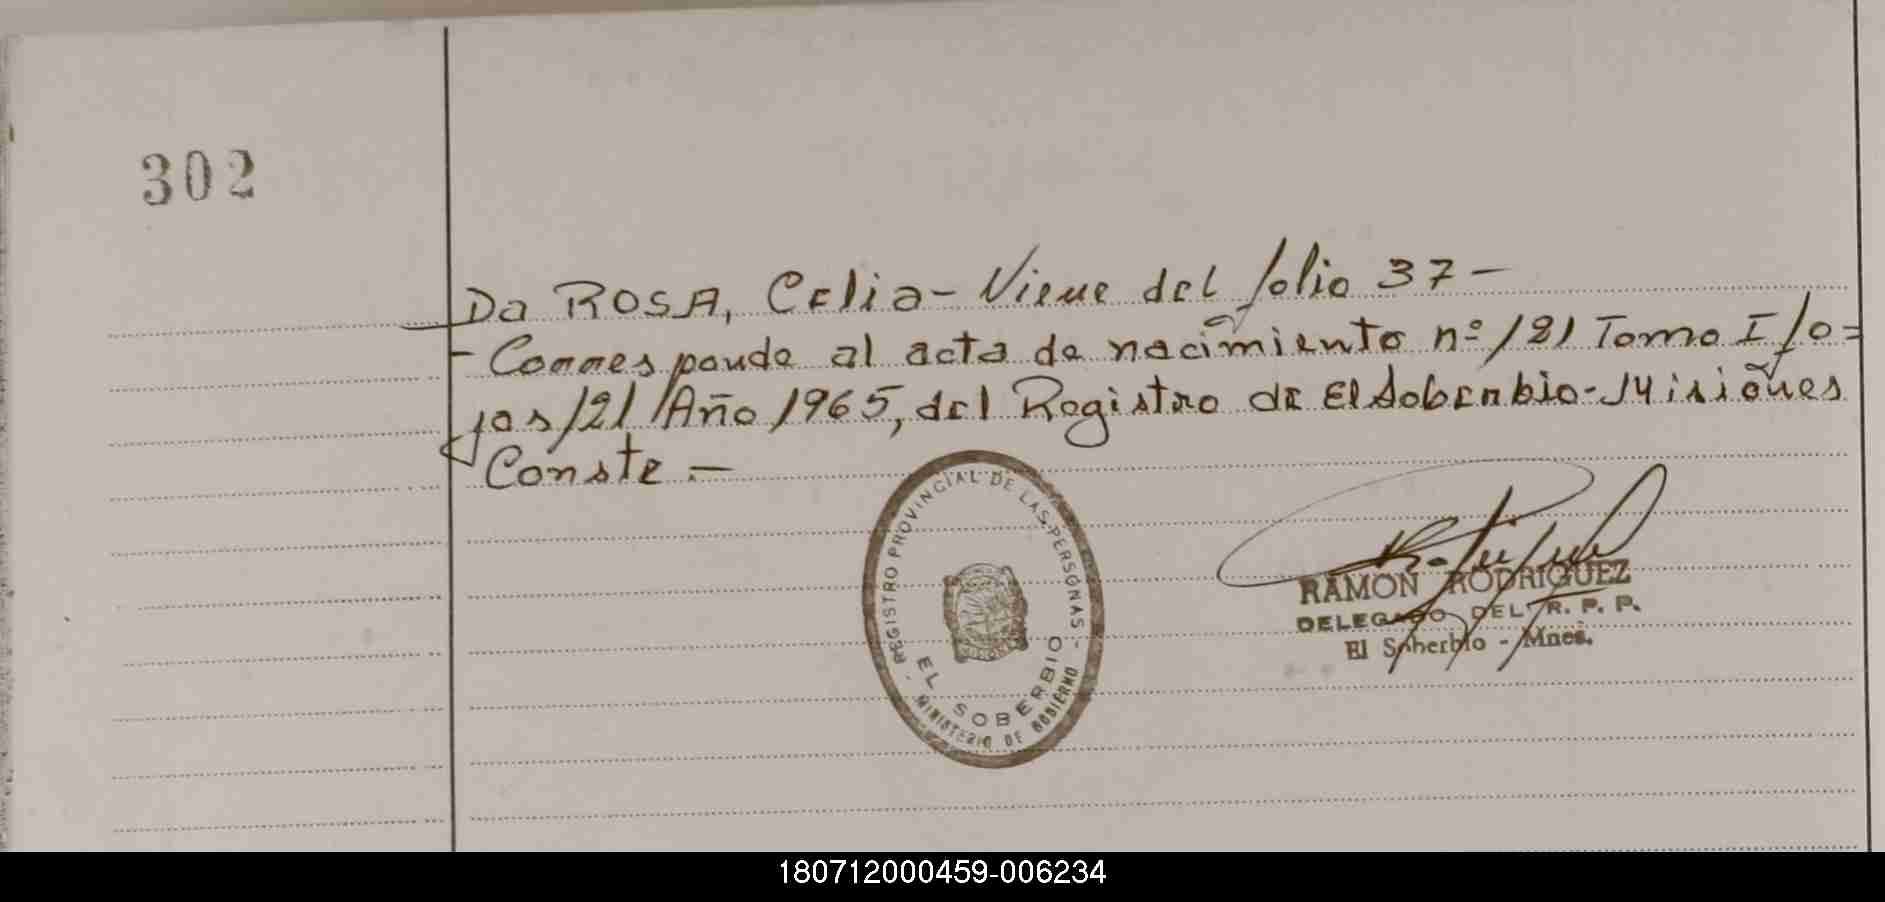 302
Da ROSA, Celia - Viene del folio 37 -
- Corresponde al acta de nacimiento nº 121 Tomo I fo=
jas 121 Año 1965, del Registro de El Soberbio - Misiones
Conste. -
REGISTRO PROVINCIAL DE LAS PERSONAS
EL SOBERBIO
MINISTERIO DE GOBIERNO
RAMON RODRIGUEZ
DELEGADO DEL R. P. P.
El Soberbio - Mnes.
180712000459-006234